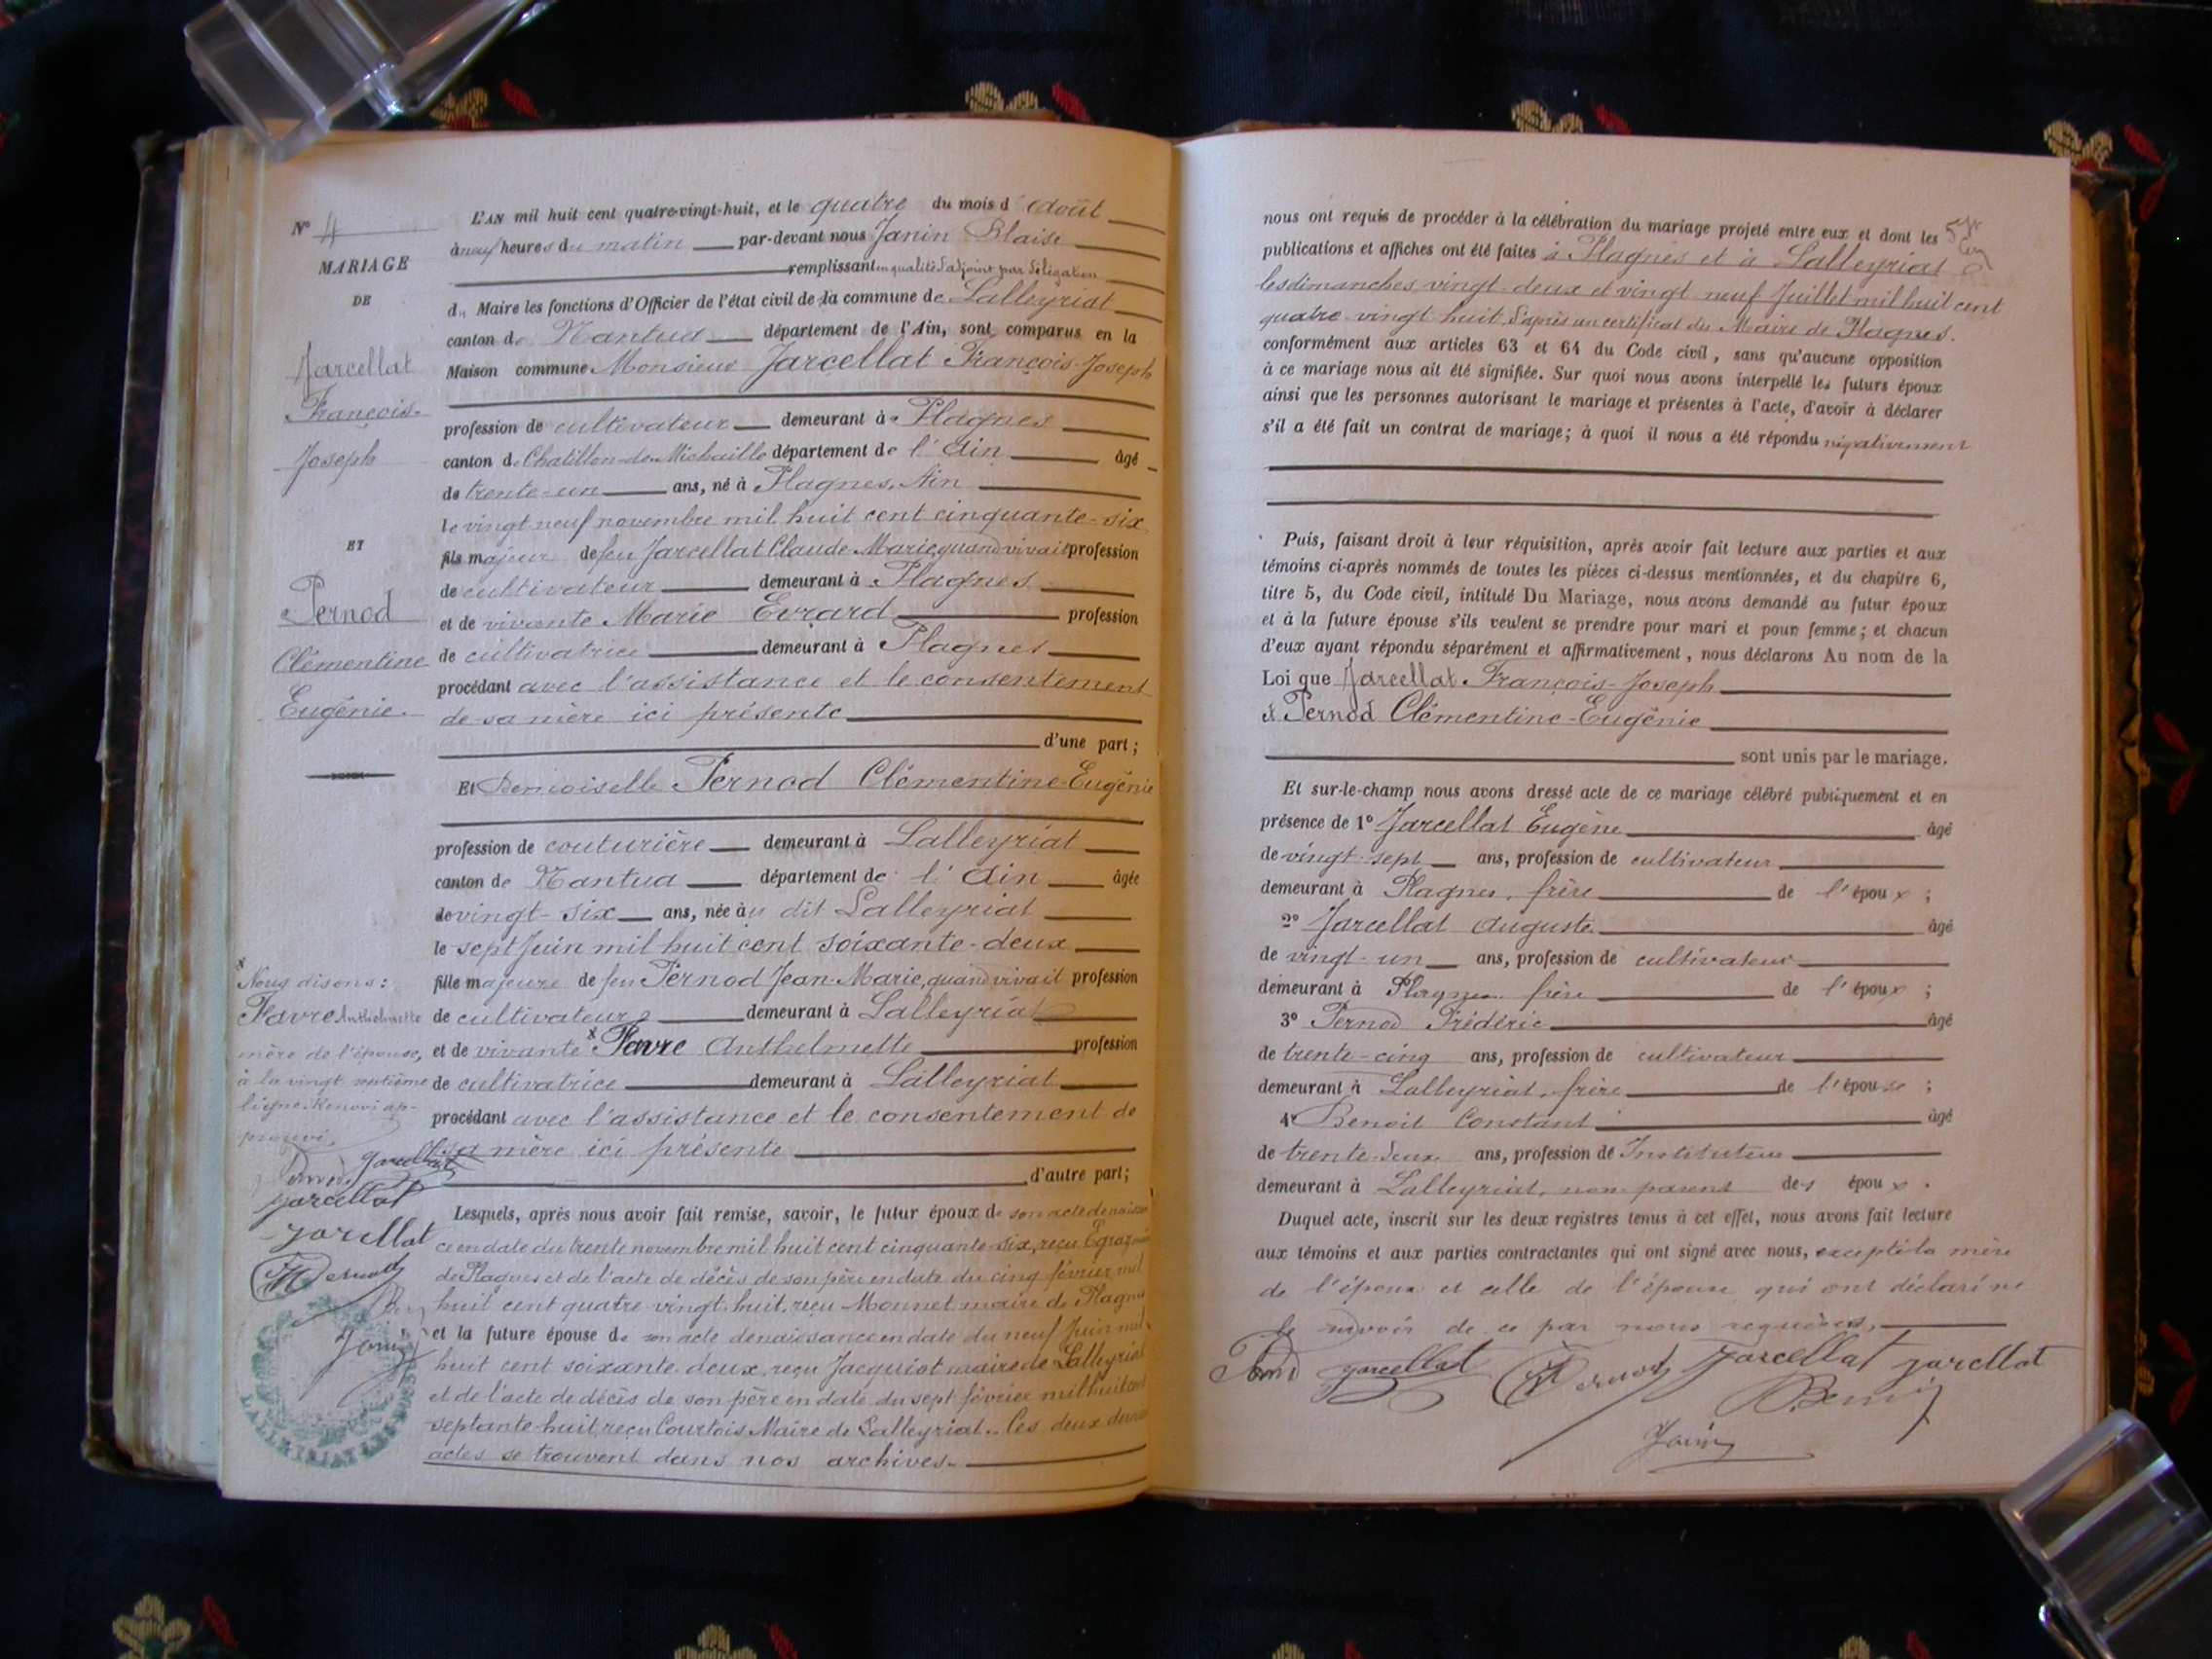 N° 4
MARIAGE
DE
Jarcellat
François-
Joseph
ET
Pernod
Clémentine
Eugénie.
L'AN mil huit cent quatre-vingt-huit, et le quatre du mois d'Août
à neuf heures du matin par-devant nous Janin Blaise
remplissant en qualité d'adjoint par délégation
du Maire les fonctions d'Officier de l'état civil de la commune de Lalleyriat
canton de Nantua département de l'Ain, sont comparus en la
Maison commune Monsieur Jarcellat François-Joseph
profession de cultivateur demeurant à Plagnes
canton de Chatillon-de-Michaille département de l'Ain âgé
de trente-un ans, né à Plagnes, Ain
le vingt neuf novembre mil huit cent cinquante-six
fils majeur de feu Jarcellat Claude-Marie, quand vivait profession
de cultivateur demeurant à Plagnes
et de vivante Marie Evrard profession
de cultivatrice demeurant à Plagnes
procédant avec l'assistance et le consentement
de sa mère ici présente
d'une part;
Et Demoiselle Pernod Clémentine-Eugénie
profession de couturière demeurant à Lalleyriat
canton de Nantua département de l'Ain âgée
de vingt-six ans, née au dit Lalleyriat
le sept Juin mil huit cent soixante-deux
fille majeure de feu Pernod Jean-Marie, quand vivait profession
de cultivateur demeurant à Lalleyriat
et de vivante x Favre Anthelmette profession
de cultivatrice demeurant à Lalleyriat
procédant avec l'assistance et le consentement de
sa mère ici présente
d'autre part;
x Nous disons:
Favre Anthelmette
mère de l'épouse,
à la vingt septième
ligne. Renvoi ap-
prouvé.
Jarcellat
Jarcellat
Jarcellat
Pernod
Janin
LALLEYRIAT
Lesquels, après nous avoir fait remise, savoir, le futur époux de son acte de naissan
ce en date du trente novembre mil huit cent cinquante-six, reçu
de Plagnes et de l'acte de décès de son père en date du cinq février mil
huit cent quatre-vingt-huit, reçu Monnet maire de Plagnes
et la future épouse de son acte de naissance en date du neuf Juin mil
huit cent soixante-deux, reçu Jacquiot maire de Lalleyriat
et de l'acte de décès de son père en date du sept février mil huit cent
septante-huit, reçu Courtois Maire de Lalleyriat. Ces deux derniers
actes se trouvent dans nos archives.
nous ont requis de procéder à la célébration du mariage projeté entre eux et dont les
publications et affiches ont été faites à Plagnes et à Lalleyriat
les dimanches vingt-deux et vingt neuf Juillet mil huit cent
quatre-vingt huit, d'après un certificat du Maire de Plagnes.
conformément aux articles 63 et 64 du Code civil, sans qu'aucune opposition
à ce mariage nous ait été signifiée. Sur quoi nous avons interpellé les futurs époux
ainsi que les personnes autorisant le mariage et présentes à l'acte, d'avoir à déclarer
s'il a été fait un contrat de mariage; à quoi il nous a été répondu négativement
Puis, faisant droit à leur réquisition, après avoir fait lecture aux parties et aux
témoins ci-après nommés de toutes les pièces ci-dessus mentionnées, et du chapitre 6,
titre 5, du Code civil, intitulé Du Mariage, nous avons demandé au futur époux
et à la future épouse s'ils veulent se prendre pour mari et pour femme; et chacun
d'eux ayant répondu séparément et affirmativement, nous déclarons Au nom de la
Loi que Jarcellat François-Joseph
et Pernod Clémentine-Eugénie
sont unis par le mariage.
Et sur-le-champ nous avons dressé acte de ce mariage célébré publiquement et en
présence de 1° Jarcellat Eugène âgé
de vingt-sept ans, profession de cultivateur
demeurant à Plagnes, frère de l'époux;
2° Jarcellat Auguste âgé
de vingt-un ans, profession de cultivateur
demeurant à Plagnes frère de l'époux;
3° Pernod Frédéric âgé
de trente-cinq ans, profession de cultivateur
demeurant à Lalleyriat, frère de l'épouse;
4° Benoit Constant âgé
de trente-deux ans, profession de Instituteur
demeurant à Lalleyriat, non parent des époux.
Duquel acte, inscrit sur les deux registres tenus à cet effet, nous avons fait lecture
aux témoins et aux parties contractantes qui ont signé avec nous, excepté la mère
de l'époux et celle de l'épouse qui ont déclaré ne
le savoir de ce par nous requises.
Jarcellat Pernod Jarcellat Jarcellat
Janin